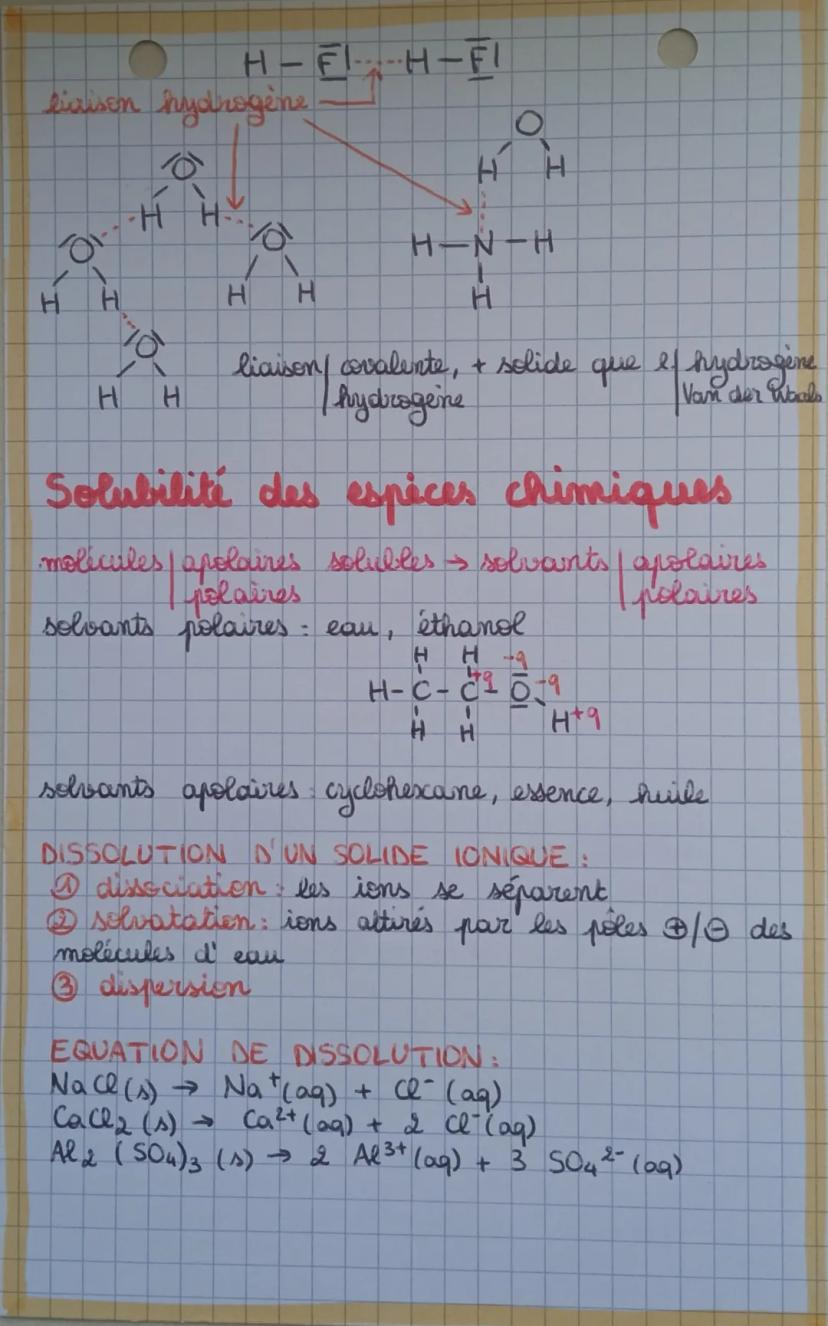 H – F ···· H – F
liaison hydrogène
O
H H
O
H H
O
H H
O
H H
H – N – H
H
O
H H
O
H H
liaison | covalente, + solide que l | hydrogène
hydrogène | Van der Waals
Solubilité des espèces chimiques
molécules | apolaires solubles → solvants | apolaires
polaires | polaires
solvants polaires : eau, éthanol
H H -q
H - C - C +q - O -q
H H H +q
solvants apolaires : cyclohexane, essence, huile
DISSOLUTION D'UN SOLIDE IONIQUE :
① dissociation : les ions se séparent
② solvatation : ions attirés par les pôles ⊕/⊖ des
molécules d'eau
③ dispersion
EQUATION DE DISSOLUTION :
NaCl (s) → Na⁺ (aq) + Cl⁻ (aq)
CaCl₂ (s) → Ca²⁺ (aq) + 2 Cl⁻ (aq)
Al₂ (SO₄)₃ (s) → 2 Al³⁺ (aq) + 3 SO₄²⁻ (aq)